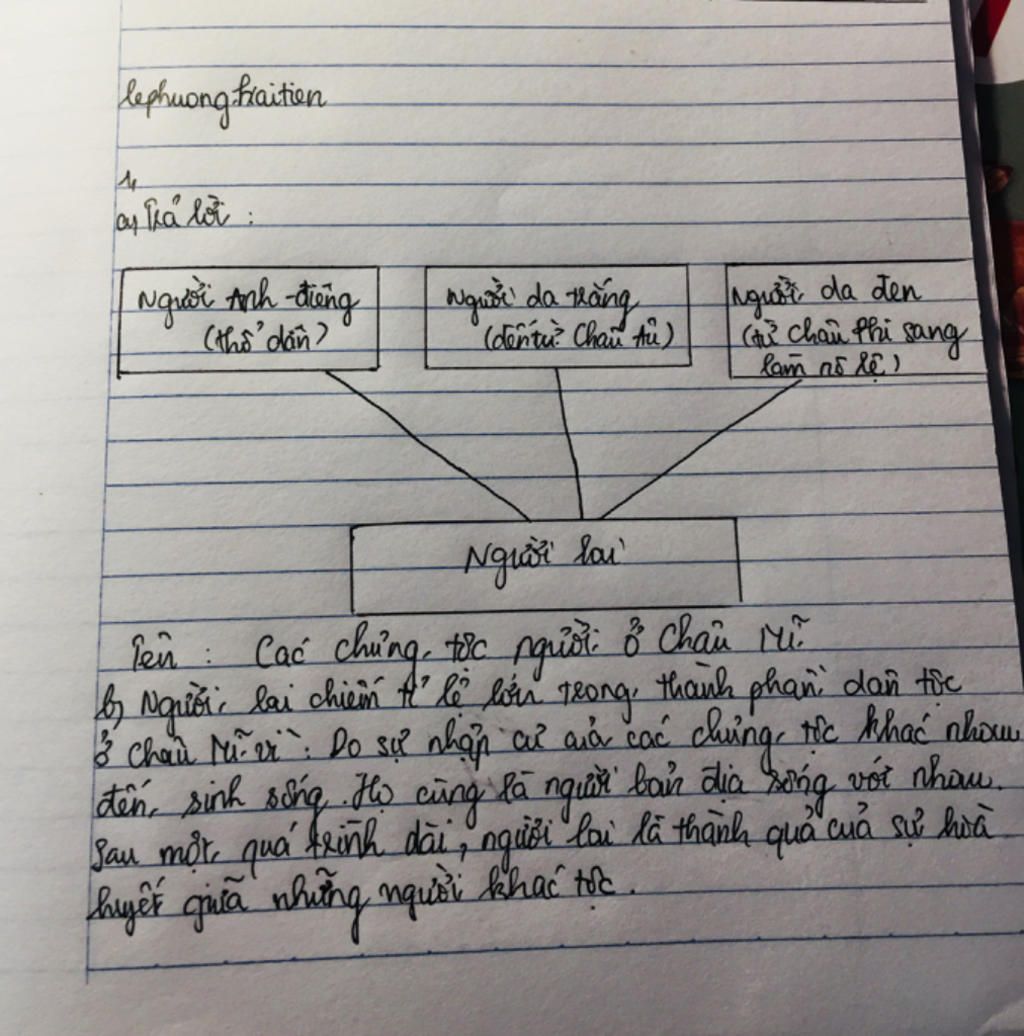 lephuongtraitien
1,
a, Trả lời :
Người Anh-điêng
(thổ dân)
Người da trắng
(đến từ Châu Âu)
Người da đen
(từ Châu Phi sang
làm nô lệ)
Người lai
Tên : Các chủng tộc người ở Châu Mĩ
b, Người lai chiếm tỉ lệ lớn trong thành phần dân tộc
ở Châu Mĩ vì : Do sự nhập cư của các chủng tộc khác nhau
đến sinh sống. Họ cùng là người bản địa sống với nhau.
Sau một quá trình dài, người lai là thành quả của sự hoà
huyết giữa những người khác tộc.